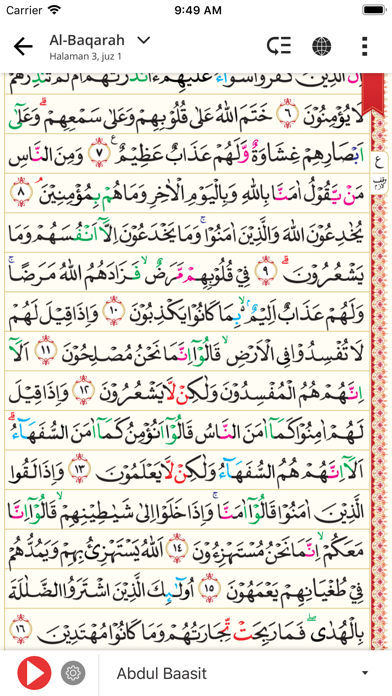 Carrier 9:49 AM
Al-Baqarah
Halaman 3, juz 1
اِنَّ الَّذِيْنَ كَفَرُوْا سَوَاۤءٌ عَلَيْهِمْ ءَاَنْذَرْتَهُمْ اَمْ لَمْ تُنْذِرْهُمْ
لَا يُؤْمِنُوْنَ ٦ خَتَمَ اللّٰهُ عَلٰى قُلُوْبِهِمْ وَعَلٰى سَمْعِهِمْ ۗ وَعَلٰٓى
اَبْصَارِهِمْ غِشَاوَةٌ وَّلَهُمْ عَذَابٌ عَظِيْمٌ ࣖ ٧ وَمِنَ النَّاسِ
ع
وقف لازم
مَنْ يَّقُوْلُ اٰمَنَّا بِاللّٰهِ وَبِالْيَوْمِ الْاٰخِرِ وَمَا هُمْ بِمُؤْمِنِيْنَ ۘ ٨
يُخٰدِعُوْنَ اللّٰهَ وَالَّذِيْنَ اٰمَنُوْا ۚ وَمَا يَخْدَعُوْنَ اِلَّآ اَنْفُسَهُمْ وَمَا
يَشْعُرُوْنَ ۗ ٩ فِيْ قُلُوْبِهِمْ مَّرَضٌ ۙ فَزَادَهُمُ اللّٰهُ مَرَضًا ۚ
وَلَهُمْ عَذَابٌ اَلِيْمٌ ۢ ۙ بِمَا كَانُوْا يَكْذِبُوْنَ ١٠ وَاِذَا قِيْلَ لَهُمْ
لَا تُفْسِدُوْا فِى الْاَرْضِ ۙ قَالُوْٓا اِنَّمَا نَحْنُ مُصْلِحُوْنَ ١١ اَلَآ
اِنَّهُمْ هُمُ الْمُفْسِدُوْنَ وَلٰكِنْ لَّا يَشْعُرُوْنَ ١٢ وَاِذَا قِيْلَ
لَهُمْ اٰمِنُوْا كَمَآ اٰمَنَ النَّاسُ قَالُوْٓا اَنُؤْمِنُ كَمَآ اٰمَنَ السُّفَهَاۤءُ ۗ
اَلَآ اِنَّهُمْ هُمُ السُّفَهَاۤءُ وَلٰكِنْ لَّا يَعْلَمُوْنَ ١٣ وَاِذَا لَقُوا
الَّذِيْنَ اٰمَنُوْا قَالُوْٓا اٰمَنَّا ۚ وَاِذَا خَلَوْا اِلٰى شَيٰطِيْنِهِمْ ۙ قَالُوْٓا اِنَّا
مَعَكُمْ ۙ اِنَّمَا نَحْنُ مُسْتَهْزِءُوْنَ ١٤ اَللّٰهُ يَسْتَهْزِئُ بِهِمْ وَيَمُدُّهُمْ
فِيْ طُغْيَانِهِمْ يَعْمَهُوْنَ ١٥ اُولٰۤىِٕكَ الَّذِيْنَ اشْتَرَوُا الضَّلٰلَةَ
بِالْهُدٰى ۖ فَمَا رَبِحَتْ تِّجَارَتُهُمْ وَمَا كَانُوْا مُهْتَدِيْنَ ١٦
Abdul Baasit